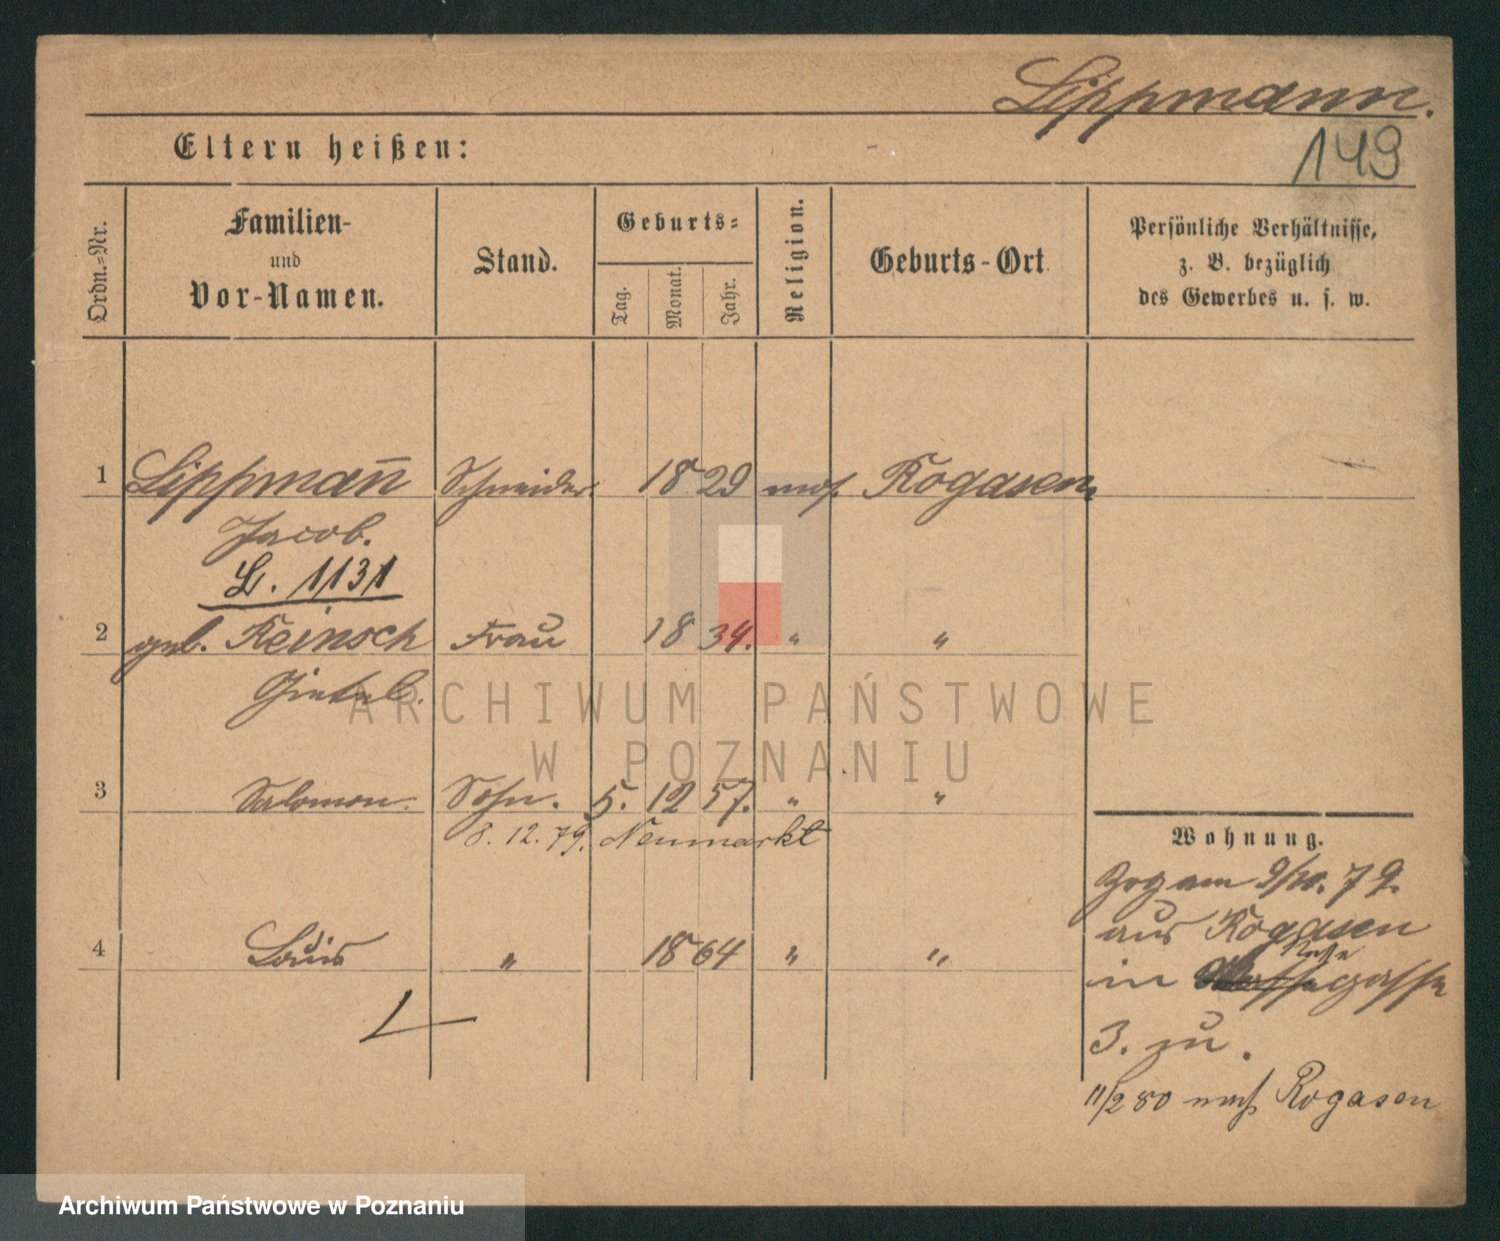 Lippmann.
149
Eltern heißen:
Ordn.-Nr.
Familien-
und
Vor-Namen.
Stand.
Geburts-
Tag.
Monat.
Jahr.
Religion.
Geburts-Ort
Persönliche Verhältnisse,
z. B. bezüglich
des Gewerbes u. s. w.
1 Lippman̄ Schneider. 1829 mos. Rogasen.
Jacob.
L. 1131
2 geb. Reinsch Frau 1834. " "
3 Salomon. Sohn. 5. 12 57. " "
8. 12. 79. Neumarkt
4 Louis " 1864 " "
Wohnung.
Zog am 9/10. 79.
aus Rogasen
in gasse
3. zu.
11/2 80 nach Rogasen
ARCHIWUM PAŃSTWOWE
W POZNANIU
Archiwum Państwowe w Poznaniu